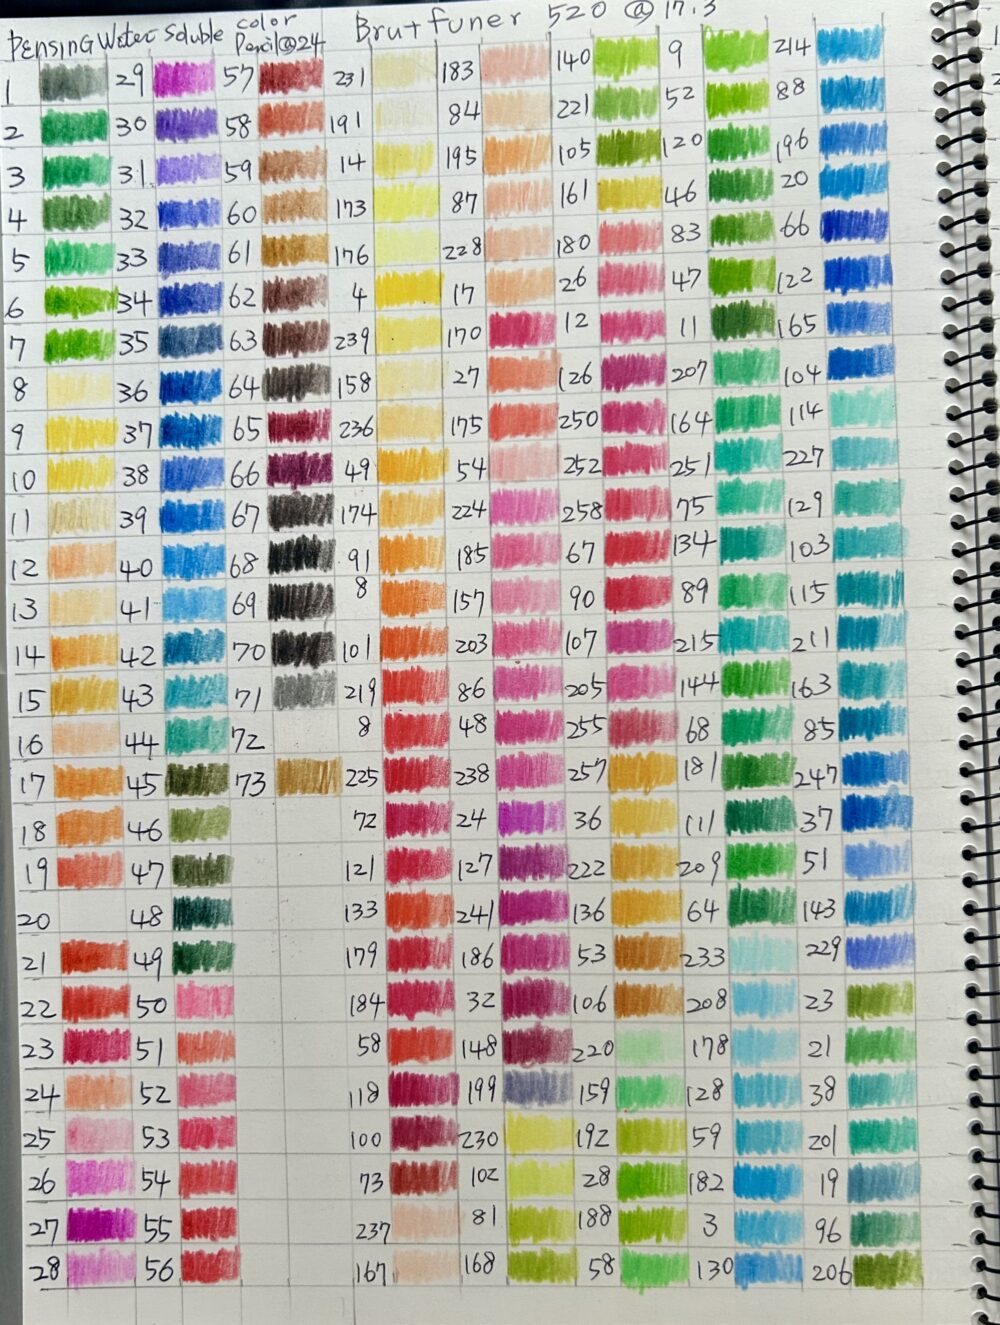 PENSING Water Soluble color Pencil@24 Brut funer 520 @ 17.3
1 29 57 231 183 140 9 214
2 30 58 191 84 221 52 88
3 31 59 14 195 105 120 196
4 32 60 173 87 161 46 20
5 33 61 176 228 180 83 66
6 34 62 4 17 26 47 122
7 35 63 239 170 12 11 165
8 36 64 158 27 126 207 104
9 37 65 236 175 250 164 114
10 38 66 49 54 252 251 227
11 39 67 174 224 258 75 129
12 40 68 91 185 67 134 103
13 41 69 8 157 90 89 115
14 42 70 101 203 107 215 211
15 43 71 219 86 205 144 163
16 44 72 8 48 255 68 85
17 45 73 225 238 257 181 247
18 46 72 24 36 111 37
19 47 121 127 222 209 51
20 48 133 241 136 64 143
21 49 179 186 53 233 229
22 50 184 32 106 208 23
23 51 58 148 220 178 21
24 52 118 199 159 128 38
25 53 100 230 192 59 201
26 54 73 102 28 182 19
27 55 237 81 188 3 96
28 56 167 168 58 130 206